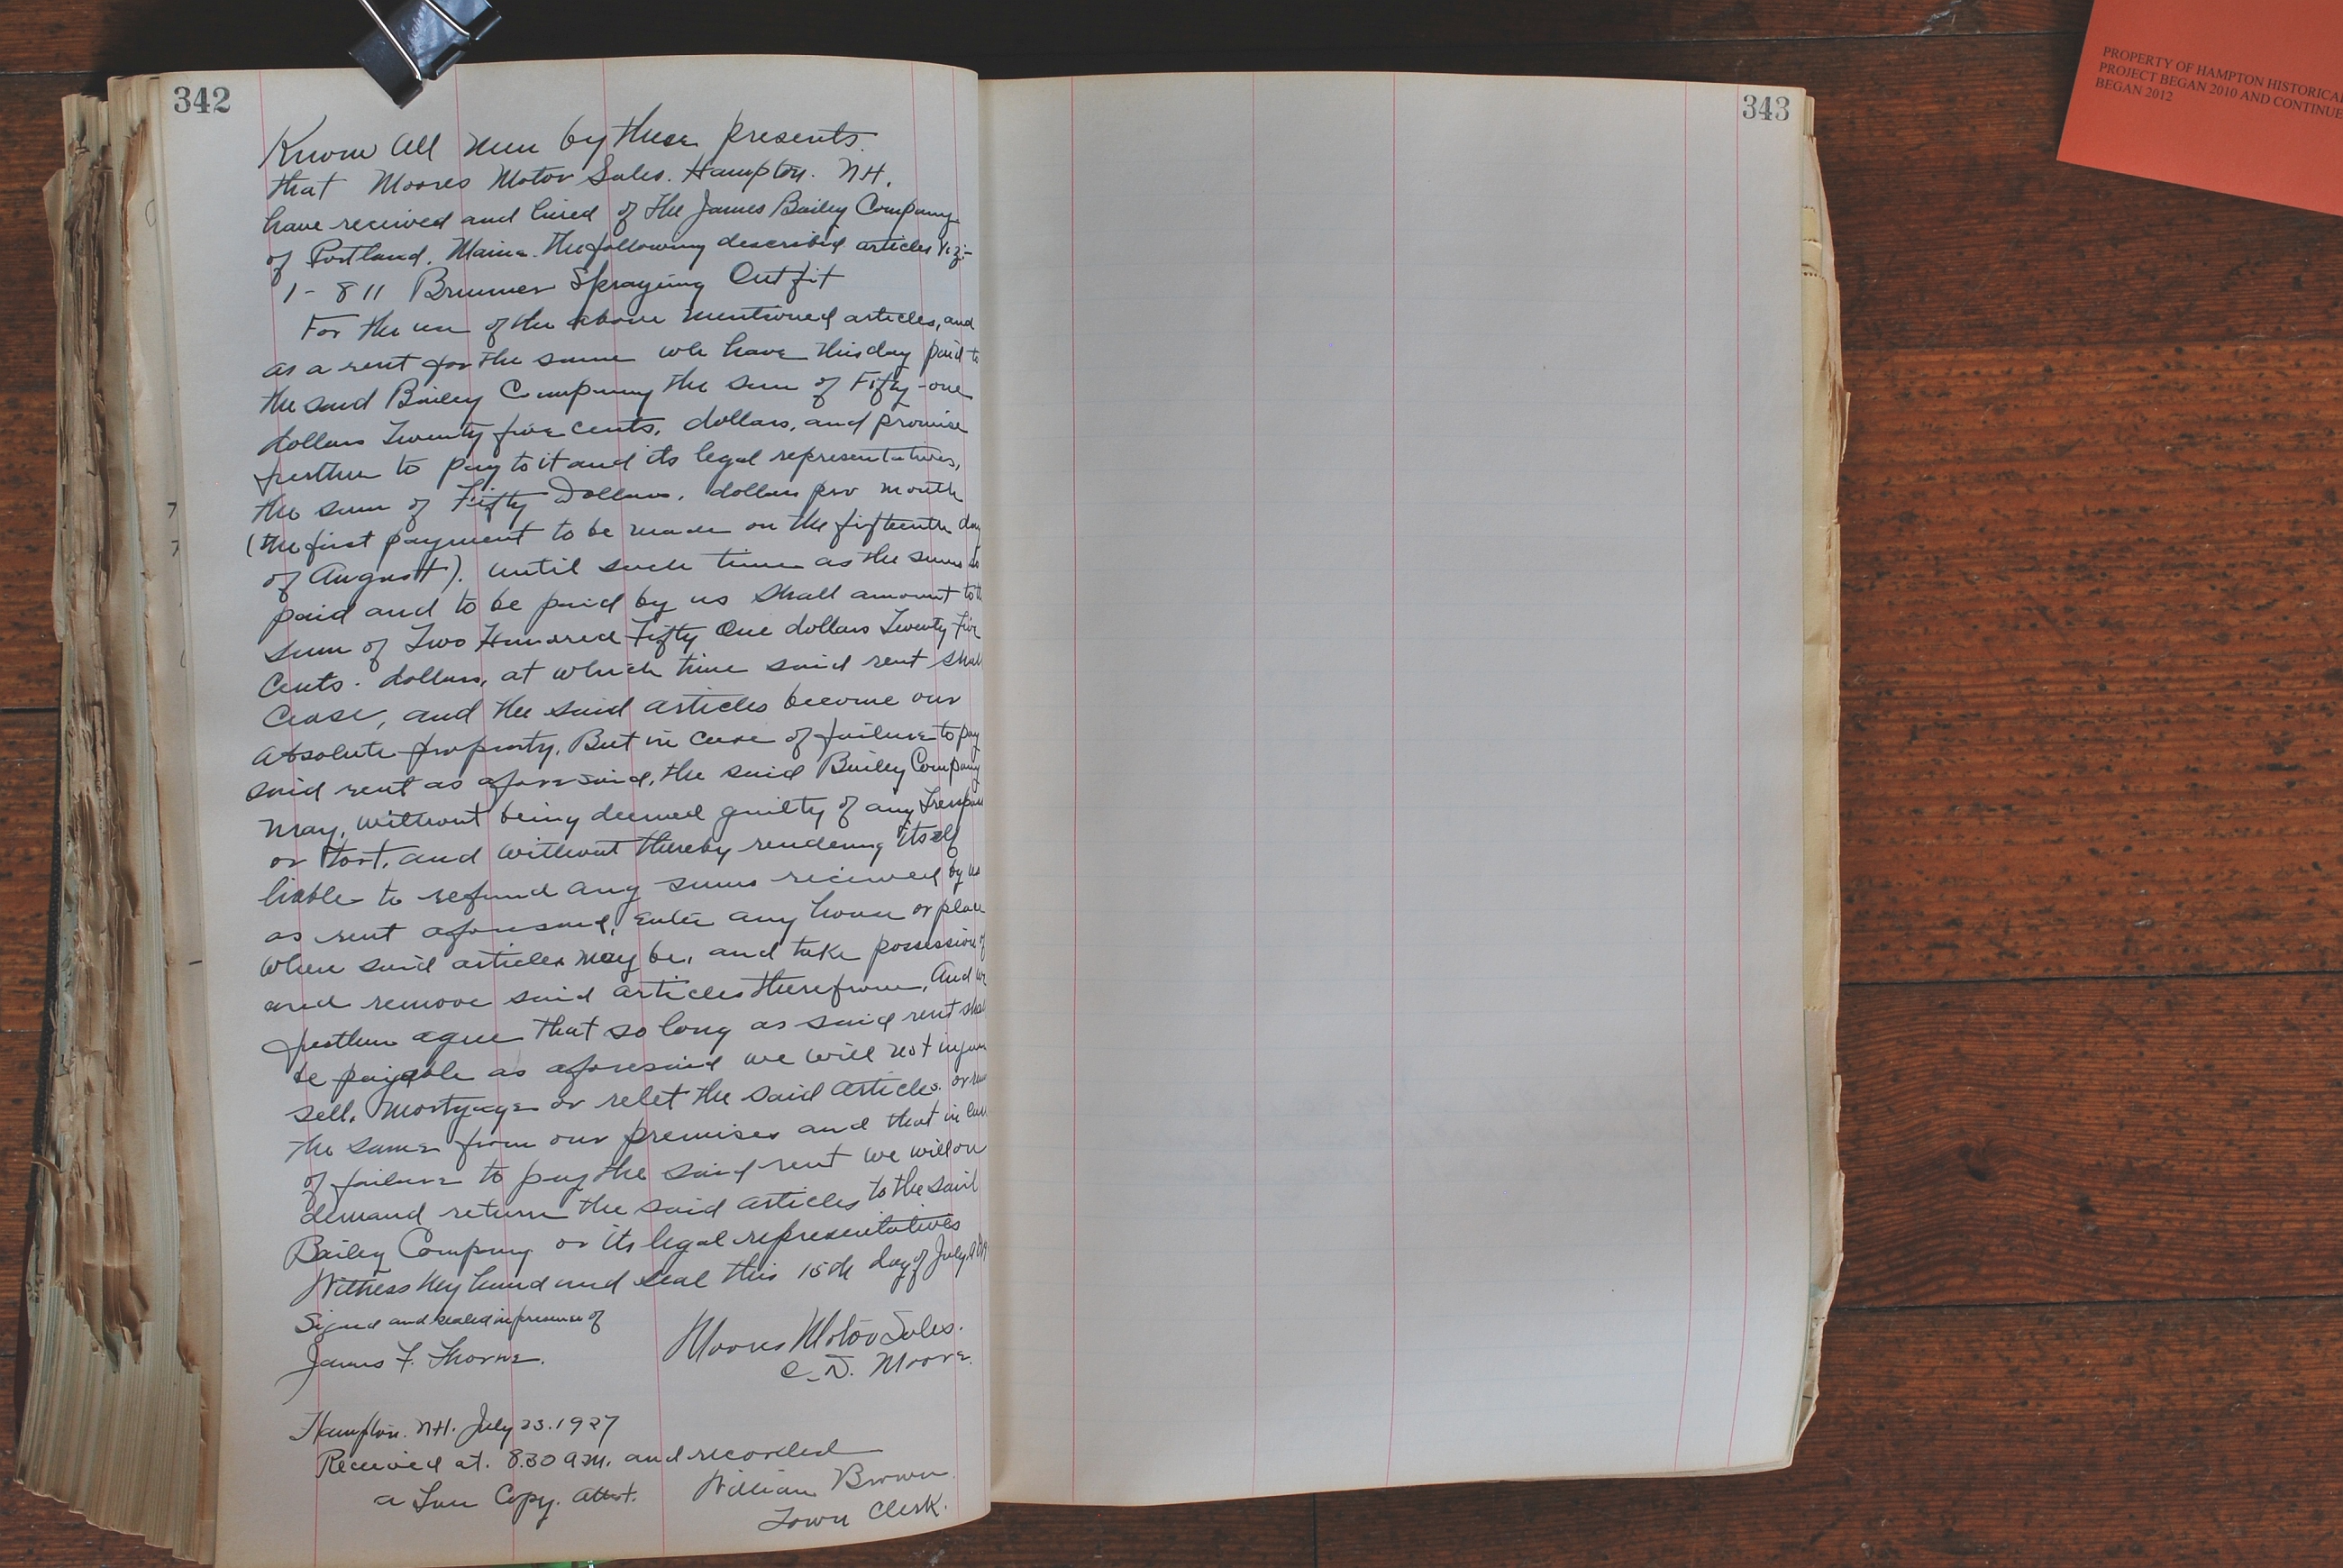 342
Know all men by these presents.
that Moores Motor Sales. Hampton. N.H.
have received and hired of the James Bailey Company
of Portland, Maine. the following described articles viz:-
1 - 811 Brunner Spraying Outfit
For the use of the above mentioned articles, and
as a rent for the same we have this day paid to
the said Bailey Company the sum of Fifty-one
dollars Twenty five cents, dollars, and promise
further to pay to it and its legal representatives,
the sum of Fifty Dollars, dollars per month
(the first payment to be made on the fifteenth day
of August). until such time as the sums so
paid and to be paid by us shall amount to the
sum of Two Hundred Fifty One dollars Twenty Five
Cents. dollars, at which time said rent shall
Cease, and the said articles become our
absolute property, But in case of failure to pay
said rent as aforesaid, the said Bailey Company
may, without being deemed guilty of any Trespass
or tort, and without thereby rendering itself
liable to refund any sums received by us
as rent aforesaid, enter any house or place
where said articles may be, and take possession of
and remove said articles therefrom, And we
further agree that so long as said rent shall
be payable as aforesaid we will not injure
sell, mortgage or relet the said articles. or
the same from our premises and that in case
of failure to pay the said rent we will on
demand return the said articles to the said
Bailey Company or its legal representatives
Witness my hand and seal this 15th day of July
Signed and sealed in presence of
James F. Thorne.
Moores Motor Sales.
C. D. Moore.
Hampton. N.H. July 23. 1927
Received at. 8.30 a.m. and recorded
a True Copy. Attest. William Brown
Town Clerk.
343
PROPERTY OF HAMPTON HISTORICAL
PROJECT BEGAN 2010 AND CONTINUE
BEGAN 2012